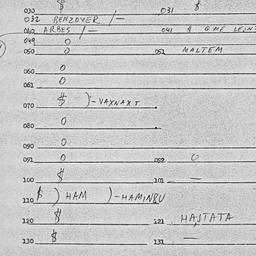 030 $ 031 $
032 BENZOYER /—
040 ARBES /— 041 $ OME
049 0
050 0 051 MALTEM
060 0
061 0
070 $ )-VAXNAXT
080 0
090 0
091 0 092 0
100 $ 101 —
110 $ ) HAM )-HAMINQU
120 $ 121 HASTATA
130 $ 131 —